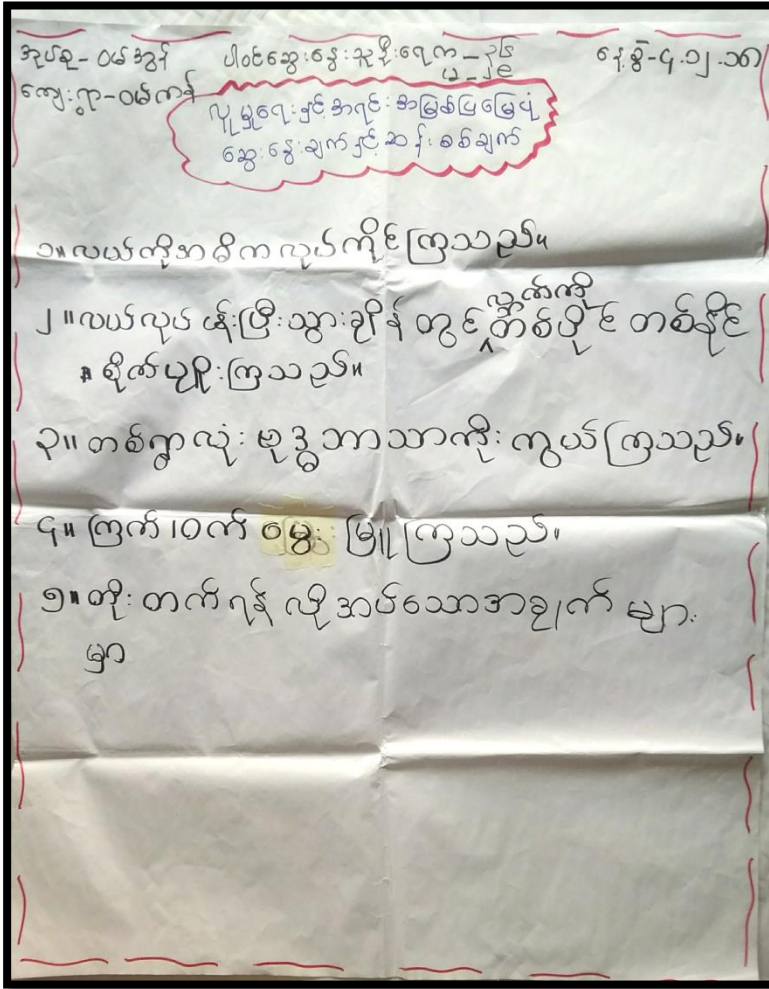 အုပ်စု- ဝမ်အွန် ပါဝင်ဆွေးနွေးသူဦးရေ ကျ _ ၃၆ နေ့စွဲ-၄.၁၂.၁၈
ကျေးရွာ-ဝမ်ကန် မ _ ၂၉
လူမှုရေးနှင့်အရင်းအမြစ်ပြမြေပုံ
ဆွေးနွေးချက်နှင့်ဆန်းစစ်ချက်
၁။ လယ်ကိုအဓိကလုပ်ကိုင်ကြသည်။
၂။ လယ်လုပ်ငန်းပြီးသွားချိန်တွင် လ္ဘက်ကိုတစ်ပိုင်တစ်နိုင်
စိုက်ပျိုးကြသည်။
၃။ တစ်ရွာလုံးဗုဒ္ဓဘာသာကိုးကွယ်ကြသည်။
၄။ ကြက်၊ဝက် မွေးမြူကြသည်။
၅။ တိုးတက်ရန်လိုအပ်သောအချက်များ
မှာ